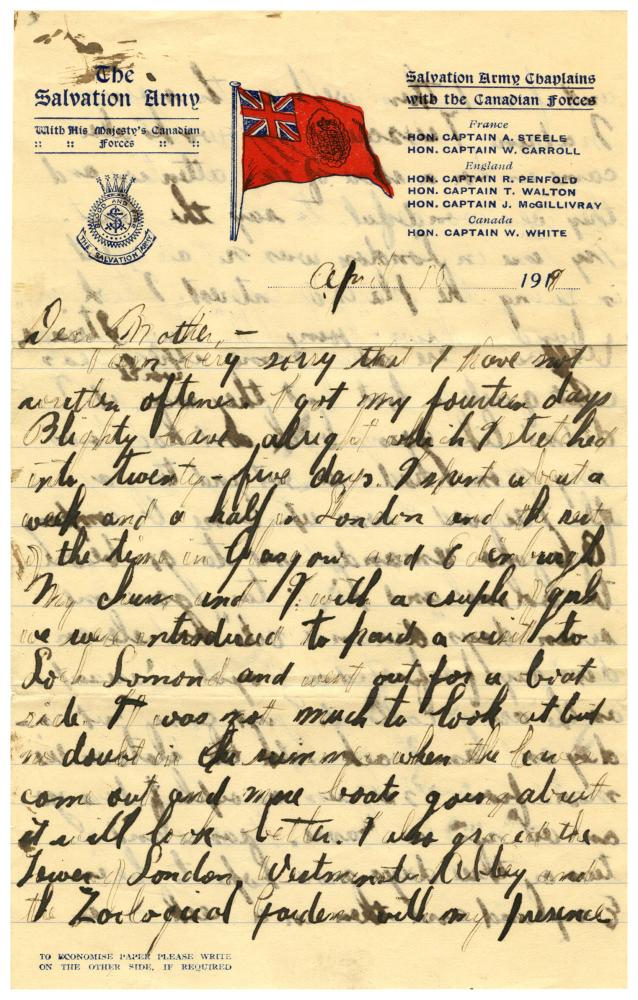 The
Salvation Army
With His Majesty's Canadian
:: :: Forces :: ::
BLOOD AND FIRE
THE SALVATION ARMY
Salvation Army Chaplains
with the Canadian Forces
France
HON. CAPTAIN A. STEELE
HON. CAPTAIN W. CARROLL
England
HON. CAPTAIN R. PENFOLD
HON. CAPTAIN T. WALTON
HON. CAPTAIN J. McGILLIVRAY
Canada
HON. CAPTAIN W. WHITE
April 10 191
Dear Mother, –
I am very sorry that I have not
written oftener. I got my fourteen days
Blighty leave alright which I stretched
into twenty-five days. I spent about a
week and a half in London and the rest
of the time in Glasgow and Edinburgh
My chum and I with a couple of girls
we were introduced to paid a visit to
Loch Lomond and went out for a boat
ride. It was not much to look at but
no doubt in the summer when the leaves
come out and more boats going about
it will look better. I also graced the
Tower of London, Westminster Abbey and
the Zoological Gardens with my presence
TO ECONOMISE PAPER PLEASE WRITE
ON THE OTHER SIDE, IF REQUIRED